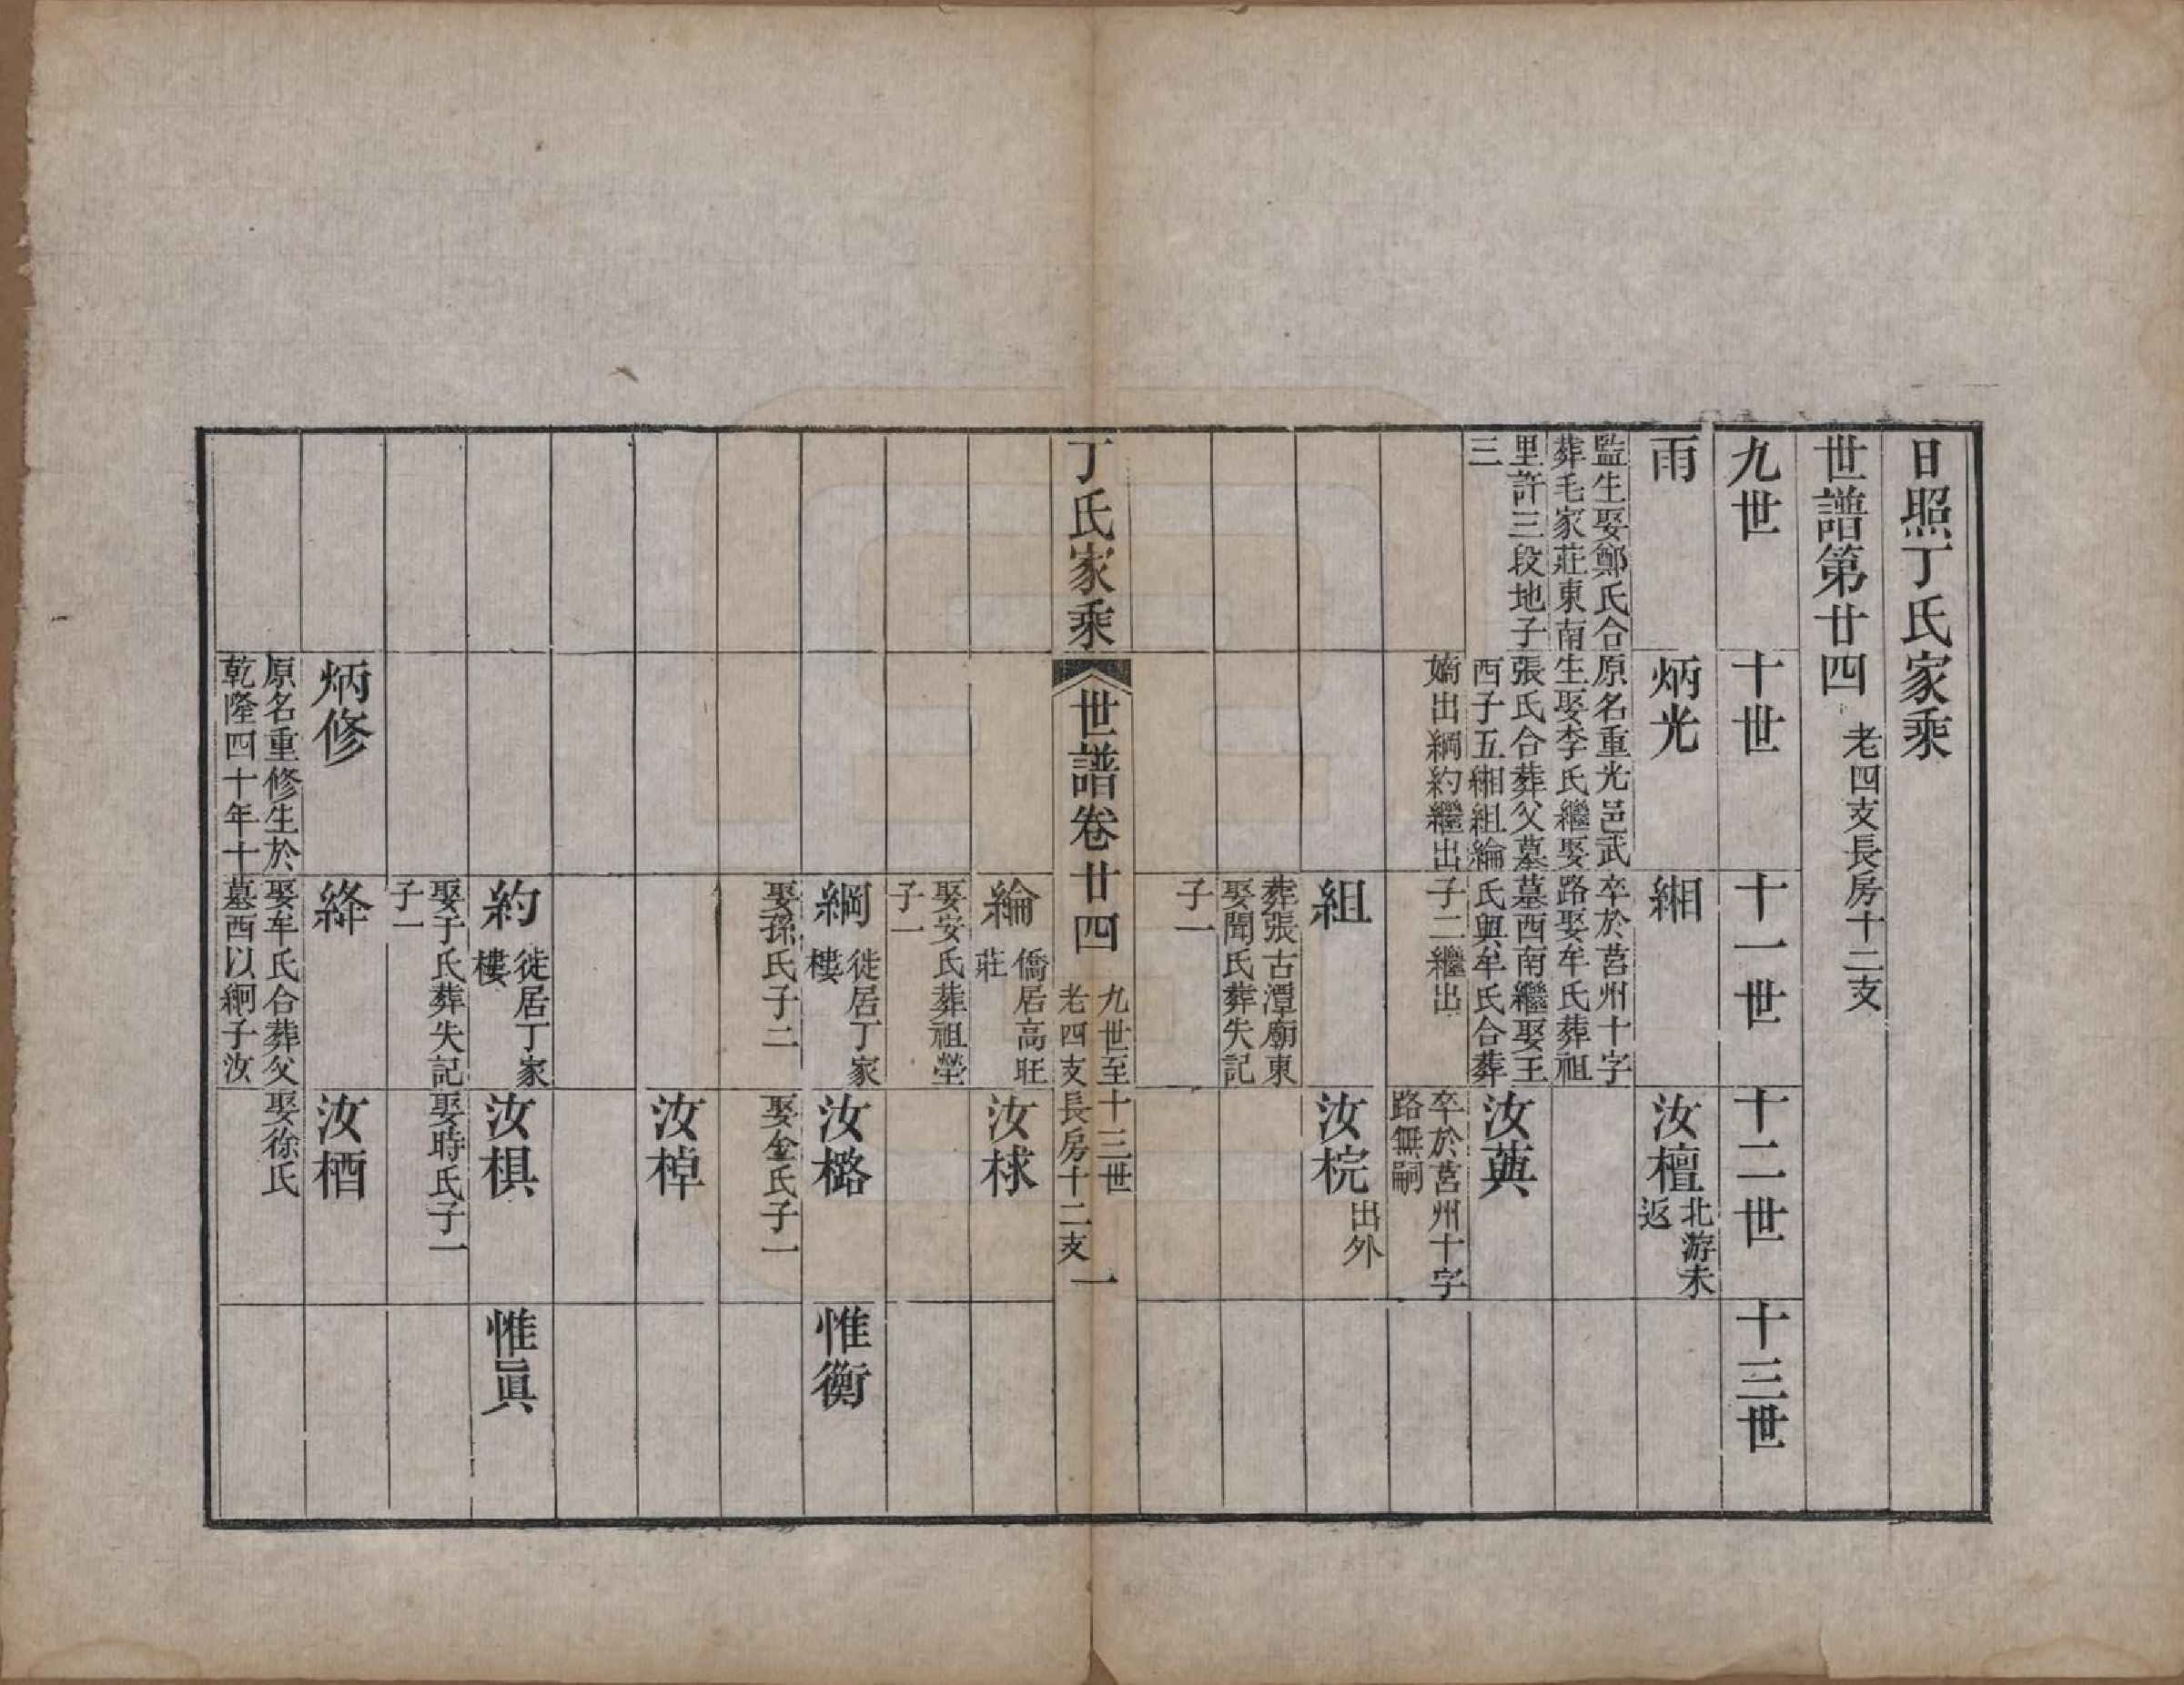 日照丁氏家乘
世譜第廿四
老四支長房十二支
九世
十世
十一世
十二世
十三世
雨
監生娶鄭氏合
葬毛家莊東南
里許三段地子
三
炳光
原名重光邑武
生娶李氏繼娶
張氏合葬父墓
西子五緗組綸
嫡出綱約繼出
緗
卒於莒州十字
路娶牟氏葬祖
墓西南繼娶王
氏與牟氏合葬
子二繼出
汝檀
北游未
返
汝䓲
卒於莒州十字
路無嗣
組
葬張古潭廟東
娶聞氏葬失記
子一
汝梡
出外
丁氏家乘
世譜卷廿四
九世至十三世
老四支長房十二支
一
綸
僑居高旺
莊
娶安氏葬祖塋
子一
汝梂
綱
徙居丁家
樓
娶孫氏子二
汝樆
娶金氏子一
惟衡
汝棹
約
徙居丁家
樓
娶于氏葬失記
子一
汝椇
娶時氏子一
惟眞
炳修
原名重修生於
乾隆四十年十
絳
娶牟氏合葬父
墓西以絅子汝
汝栖
娶徐氏